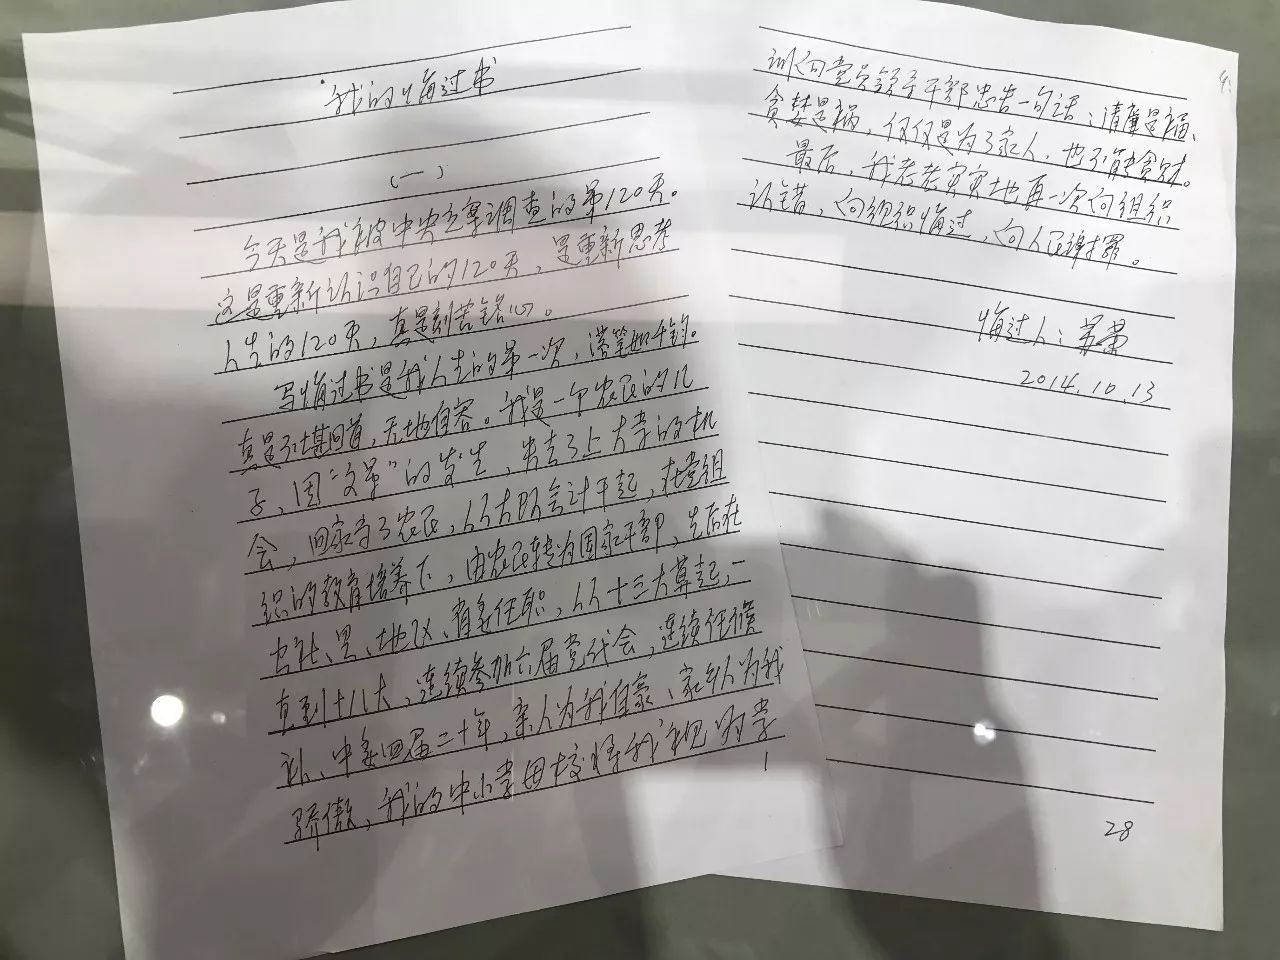 我的悔过书
（一）
今天是我被中央立案调查的第120天。
这是重新认识自己的120天，是重新思考
人生的120天，真是刻苦铭心。
写悔过书是我人生的第一次，落笔如千钧。
真是不堪回首，无地自容。我是一个农民的儿
子，因“文革”的发生，失去了上大学的机
会，回家当了农民，从大队会计干起，在党组
织的教育培养下，由农民转为国家干部，先后在
公社、县、地区、省委任职，从十三大算起，一
直到十八大，连续参加六届党代会，连续任候
补、中委四届二十年，亲人为我自豪、家乡人为我
骄傲，我的中小学母校将我视为学
1
训向党员领导干部忠告一句话：清廉是福、
贪婪是祸，仅仅是为了家人，也不能贪财。
最后，我老老实实地再一次向组织
认错，向组织悔过，向人民谢罪。
悔过人：苏荣
2014.10.13
28